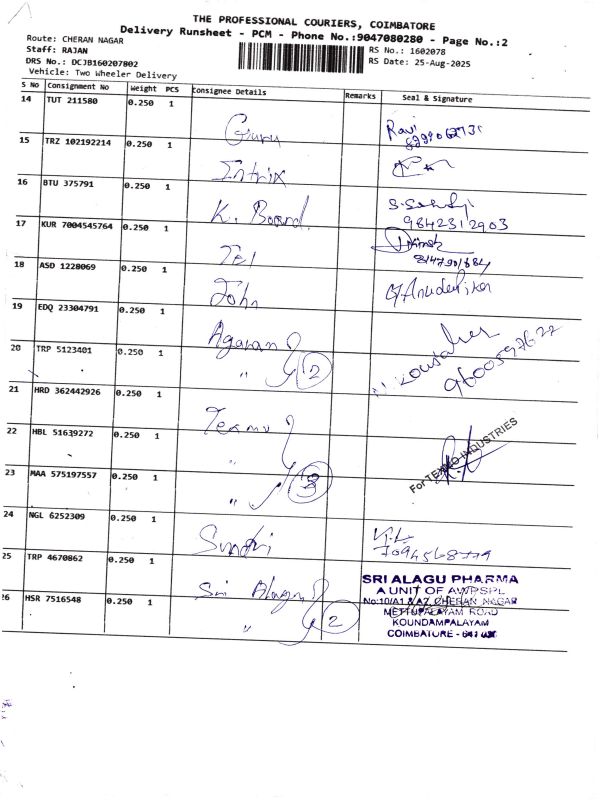 THE PROFESSIONAL COURIERS, COIMBATORE
Delivery Runsheet - PCM - Phone No.:9047080280 - Page No.:2
Route: CHERAN NAGAR
Staff: RAJAN
RS No.: 1602078
DRS No.: DCJB160207802
RS Date: 25-Aug-2025
Vehicle: Two Wheeler Delivery
S No Consignment No Weight PCS Consignee Details Remarks Seal & Signature
14 TUT 211580 0.250 1 Guru Ravi
15 TRZ 102192214 0.250 1 Intrix
16 BTU 375791 0.250 1 K. Board 9842312903
17 KUR 7004545764 0.250 1 Tel
18 ASD 1228069 0.250 1 John
19 EDQ 23304791 0.250 1 Agaran
20 TRP 5123401 0.250 1 " 2
9600597622
21 HRD 362442926 0.250 1
22 HBL 51639272 0.250 1 "
For TEKNO INDUSTRIES
23 MAA 575197557 0.250 1 " 3
24 NGL 6252309 0.250 1 Sundri
25 TRP 4670862 0.250 1 Sri Alagu
26 HSR 7516548 0.250 1 " 2
SRI ALAGU PHARMA
A UNIT OF AWPSPL
No:10/A1 & A2, CHERAN NAGAR
METTUPALAYAM ROAD
KOUNDAMPALAYAM
COIMBATORE - 641